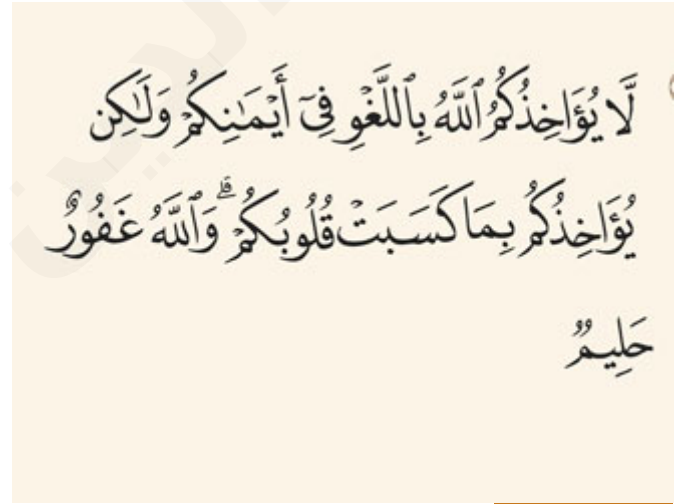 لَّا يُؤَاخِذُكُمُ ٱللَّهُ بِٱللَّغْوِ فِىٓ أَيْمَٰنِكُمْ وَلَٰكِن
يُؤَاخِذُكُم بِمَا كَسَبَتْ قُلُوبُكُمْ ۗ وَٱللَّهُ غَفُورٌ
حَلِيمٌ